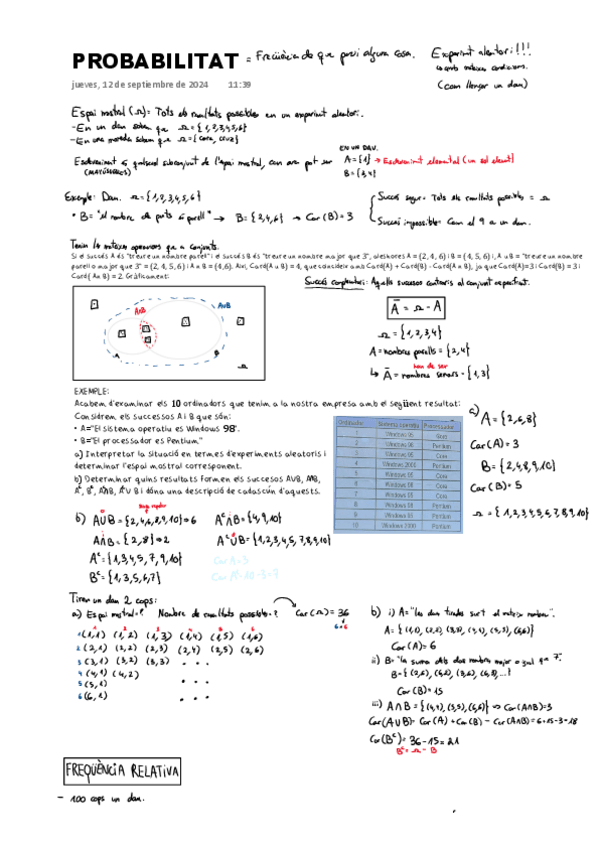 PROBABILITAT = Freqüència de que passi alguna cosa.
Experiment aleatori!!!
jueves, 12 de septiembre de 2024 11:39
(com llençar un dau)
Espai mostral (Ω): Tots els resultats possibles en un experiment aleatori.
-En un dau sabem que Ω={1,2,3,4,5,6}
-En una moneda sabem que Ω={cara, creu}
EN UN DAU.
Esdeveniment és qualsevol subconjunt de l'espai mostral, com ara pot ser
A={1} → Esdeveniment elemental (un sol element)
B={3,4}
Exemple: Dau. Ω={1,2,3,4,5,6}
• B="el nombre de punts és parell" → B={2,4,6} → Car(B)=3
Succés segur: Tots els resultats possibles = Ω
Succés impossible: Com el 9 a un dau.
Tenim les mateixes operacions que a conjunts.
Si el succés A és "treure un nombre parell" i el succés B és "treure un nombre major que 3", aleshores A = {2, 4, 6} i B = {4, 5, 6} i, A ∪ B = "treure un nombre
parell o major que 3" = {2, 4, 5, 6} i A ∩ B = {4,6}. Així, Card(A ∪ B) = 4, que coincideix amb Card(A) + Card(B) - Card(A ∩ B), ja que Card(A)=3 i Card(B) = 3 i
Card( A∩ B) = 2. Gràficament:
Succés complementari: Aquells sucesos contraris al conjunt especificat.
A∩B
A∪B
A
B
Ā = Ω - A
Ω = {1,2,3,4}
A = nombres parells = {2,4}
han de ser
↳ Ā = nombres senars = {1,3}
EXEMPLE:
Acabem d'examinar els 10 ordinadors que tenim a la nostra empresa amb el següent resultat:
Considrem els successos A i B que són:
• A="El sistema operatiu es Windows 98".
• B="El processador es Pentium."
a) Interpretar la Situació en termes d'experiments aleatoris i
determinar l'espai mostral corresponent.
b) Determinar quins resultats formen els sucesos A∪B, A∩B,
i dóna una descripció de cadascún d'aquests.
Ordinador Sistema operatiu Processador
1 Windows 95 Core
2 Windows 98 Pentium
3 Windows 95 Core
4 Windows 2000 Pentium
5 Windows 95 Core
6 Windows 98 Core
7 Windows 95 Core
8 Windows 98 Pentium
9 Windows 95 Pentium
10 Windows 2000 Pentium
a) A={2,6,8}
Car(A)=3
B={2,4,8,9,10}
Car(B)=5
Ω={1,2,3,4,5,6,7,8,9,10}
b) A∪B={2,4,6,8,9,10}⇒6
Aᶜ∩B={4,9,10}
A∩B={2,8}⇒2
Aᶜ∪B={1,2,3,4,5,7,8,9,10}
Aᶜ={1,3,4,5,7,9,10}
Car A=3
Bᶜ={1,3,5,6,7}
Car Aᶜ=10-3=7
Tirem un dau 2 cops:
a) Espai mostral=? Nombre de resultats possibles=? Car(Ω)=36
6·6
1 2 3 4 5 6
1 (1,1) (1,2) (1,3) (1,4) (1,5) (1,6)
2 (2,1) (2,2) (2,3) (2,4) (2,5) (2,6)
3 (3,1) (3,2) (3,3) . . .
4 (4,1) (4,2)
5 (5,1) . . .
6 (6,1)
b) i) A="les dues tirades surt el mateix nombre".
A={(1,1),(2,2),(3,3),(4,4),(5,5),(6,6)}
Car(A)=6
ii) B="la suma dels dos nombres major o igual que 8".
B={(2,6),(6,2),(3,6),(6,3),...}
Car(B)=15
iii) A∩B={(4,4),(5,5),(6,6)} ⇒ Car(A∩B)=3
Car(A∪B)=Car(A)+Car(B)-Car(A∩B)=6+15-3=18
Car(Bᶜ)=36-15=21
Bᶜ=Ω-B
FREQÜÈNCIA RELATIVA
- 100 cops un dau.